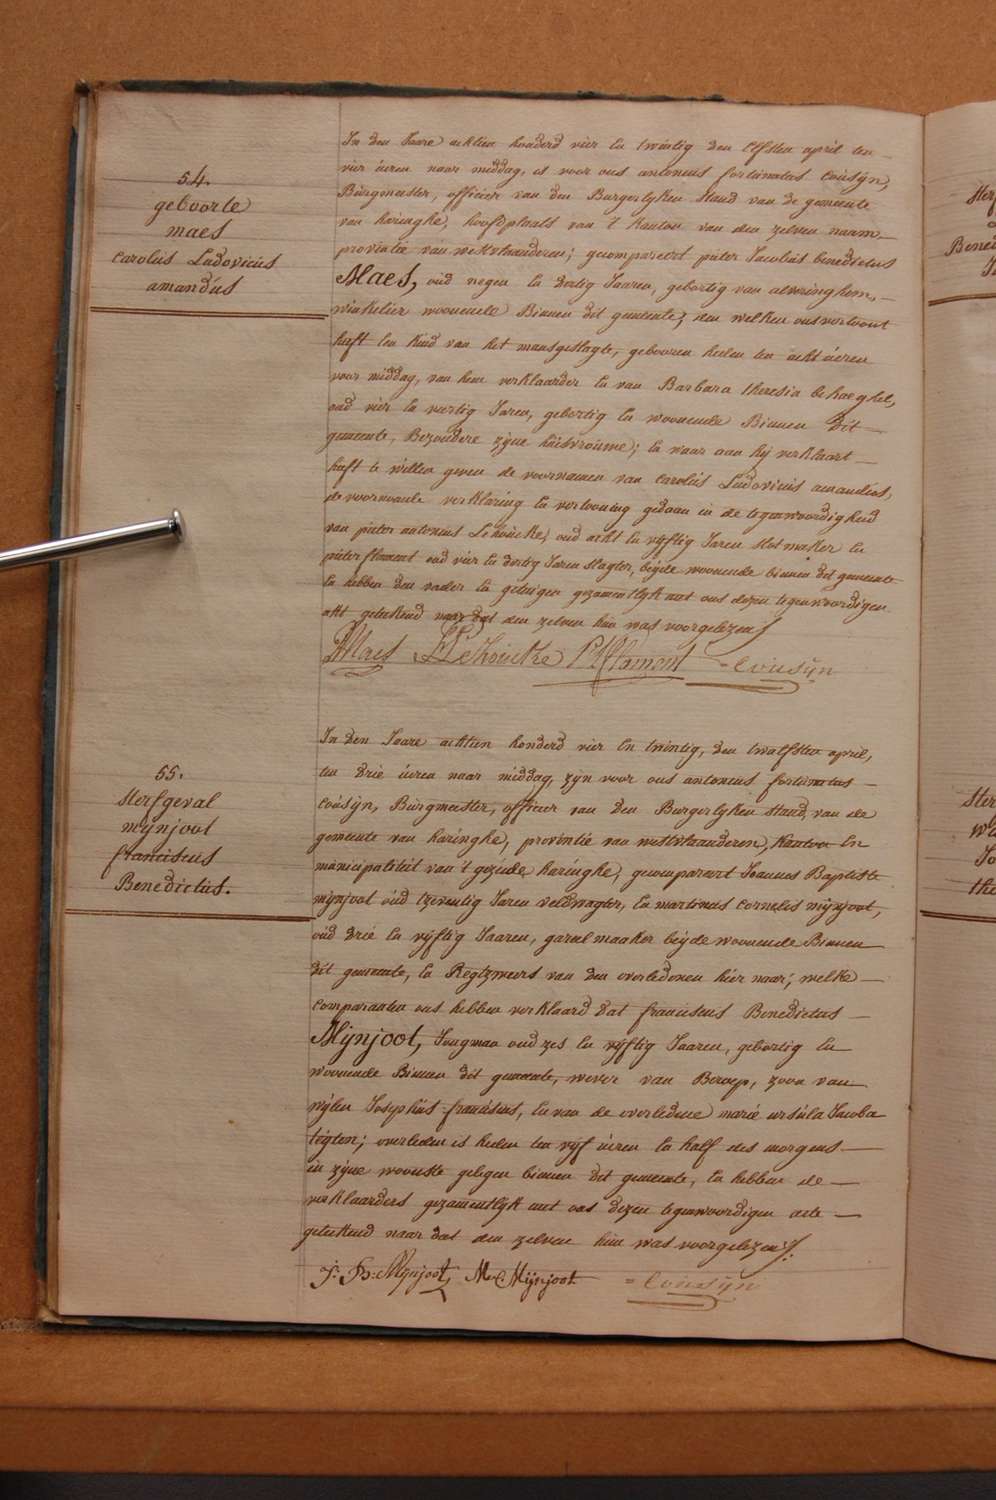 54.
geboorte
maes
Carolus Ludovicus
amandus
In den Jaare achtien honderd vier en twintig den Elfsten april ten
vier uéren naer middag, is voor ons antonius fortunatus Cousÿn,
Burgmeester, officier van den Burgerlyken Stand van de gemeente
van haringhe, hoofdplaats van 't kanton van den zelven naam
provintie van westvlaanderen; gecompareert pieter Jacobus benedictus
Maes, oud negen en dertig Jaaren, gebortig van alveringhem,
winkelier woonende Binnen dit gemeente, den welken ons vertoont
heeft een kind van het mansgeslagte, gebooren heden ten acht uéren
voor middag, van hem verklaarder en van Barbara theresia behaeghel,
oud vier en veertig Jaren, gebortig en woonende Binnen dit
gemeente, Bezondere zÿne huisvrouwe; en waar aan hy verklaart
heeft te willen geven de voornamen van Carolus Ludovicus amandus,
de voornoemde verklaring en vertooning gedaan in de tegenwoordigheid
van pieter antonius Lehoucke, oud acht en vÿftig Jaren Slotmaker en
pieter flament oud vier en dertig Jaren Slagter, beÿde woonende binnen dit gemeente
en hebben den vader en getuigen gezamentlyk met ons dezen tegenwoordigen
akt geteekend naer dat den zelven hun was voorgelezen
PMaes Lehoucke P flament Cousÿn
55.
Sterfgeval
mÿnjoot
franciscus
Benedictus.
In den Jaare achtien honderd vier en twintig, den twalfsten april,
ten drie uéren naar middag, zyn voor ons antonius fortunatus
Cousÿn, Burgmeester, officier van den Burgerlyken Stand, van de
gemeente van haringhe, provintie van westvlaanderen, Kanton en
municipaliteit van 't gezeide haringhe, gecompareert Joannes Baptiste
mÿnjoot oud tzeventig Jaren veldwagter, en martinus Cornelis mÿnjoot,
oud drie en vÿftig Jaaren, gareelmaaker beÿde woonende Binnen
dit gemeente, en Regtzweers van den overledenen hier naar; welke
comparanten ons hebben verklaard dat franciscus Benedictus
Mÿnjoot, Jongman oud zes en vÿftig Jaaren, gebortig en
woonende Binnen dit gemeente, wever van Beroep, zoon van
wÿlen Josephus franciscus, en van de overledene marie ursula Jacoba
overleden is heden ten vÿf uéren en half des morgens
in zÿne woonste gelegen binnen dit gemeente, en hebben de
verklaarders gezamentlyk met ons dezen tegenwoordigen acte
geteekend naar dat den zelven hun was voorgelezen
J: B: Mÿnjoot M C Mÿnjoot Cousÿn